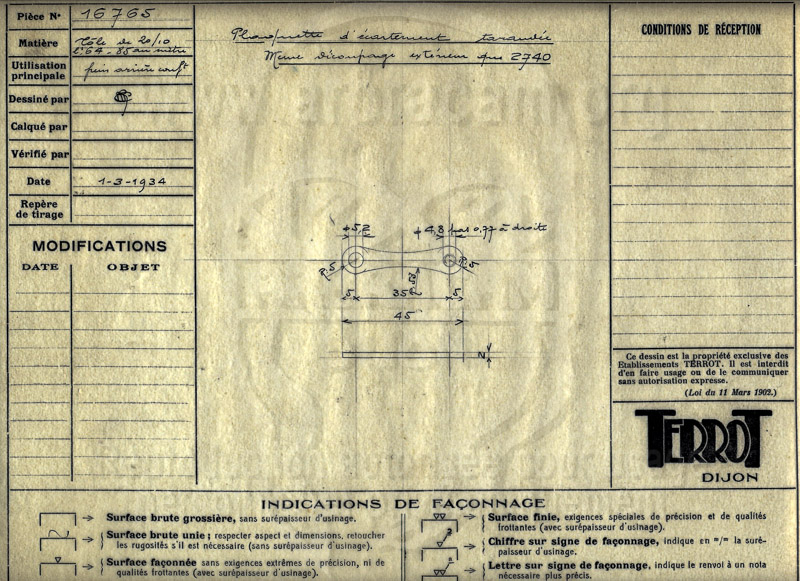 Pièce No 16765
Matière Tôle de 20/10
Utilisation principale frein arrière
Dessiné par
Calqué par
Vérifié par
Date 1-3-1934
Repère de tirage
MODIFICATIONS
DATE OBJET
Plaquette d'écartement taraudée
Meme découpage extérieur que 2740
5,2
4,3 pas 0,77 à droite
R.5
R.5
R.55
5 35 5
45
2
CONDITIONS DE RÉCEPTION
Ce dessin est la propriété exclusive des
Etablissements TERROT. Il est interdit
d'en faire usage ou de le communiquer
sans autorisation expresse.
(Loi du 11 Mars 1902.)
TERROT
DIJON
INDICATIONS DE FAÇONNAGE
Surface brute grossière, sans surépaisseur d'usinage.
Surface brute unie ; respecter aspect et dimensions, retoucher
les rugosités s'il est nécessaire (sans surépaisseur d'usinage).
Surface façonnée sans exigences extrêmes de précision, ni de
qualités frottantes (avec surépaisseur d'usinage).
Surface finie, exigences spéciales de précision et de qualités
frottantes (avec surépaisseur d'usinage).
Chiffre sur signe de façonnage, indique en m/m la surépaisseur d'usinage.
Lettre sur signe de façonnage, indique le renvoi à un nota
nécessaire plus précis.